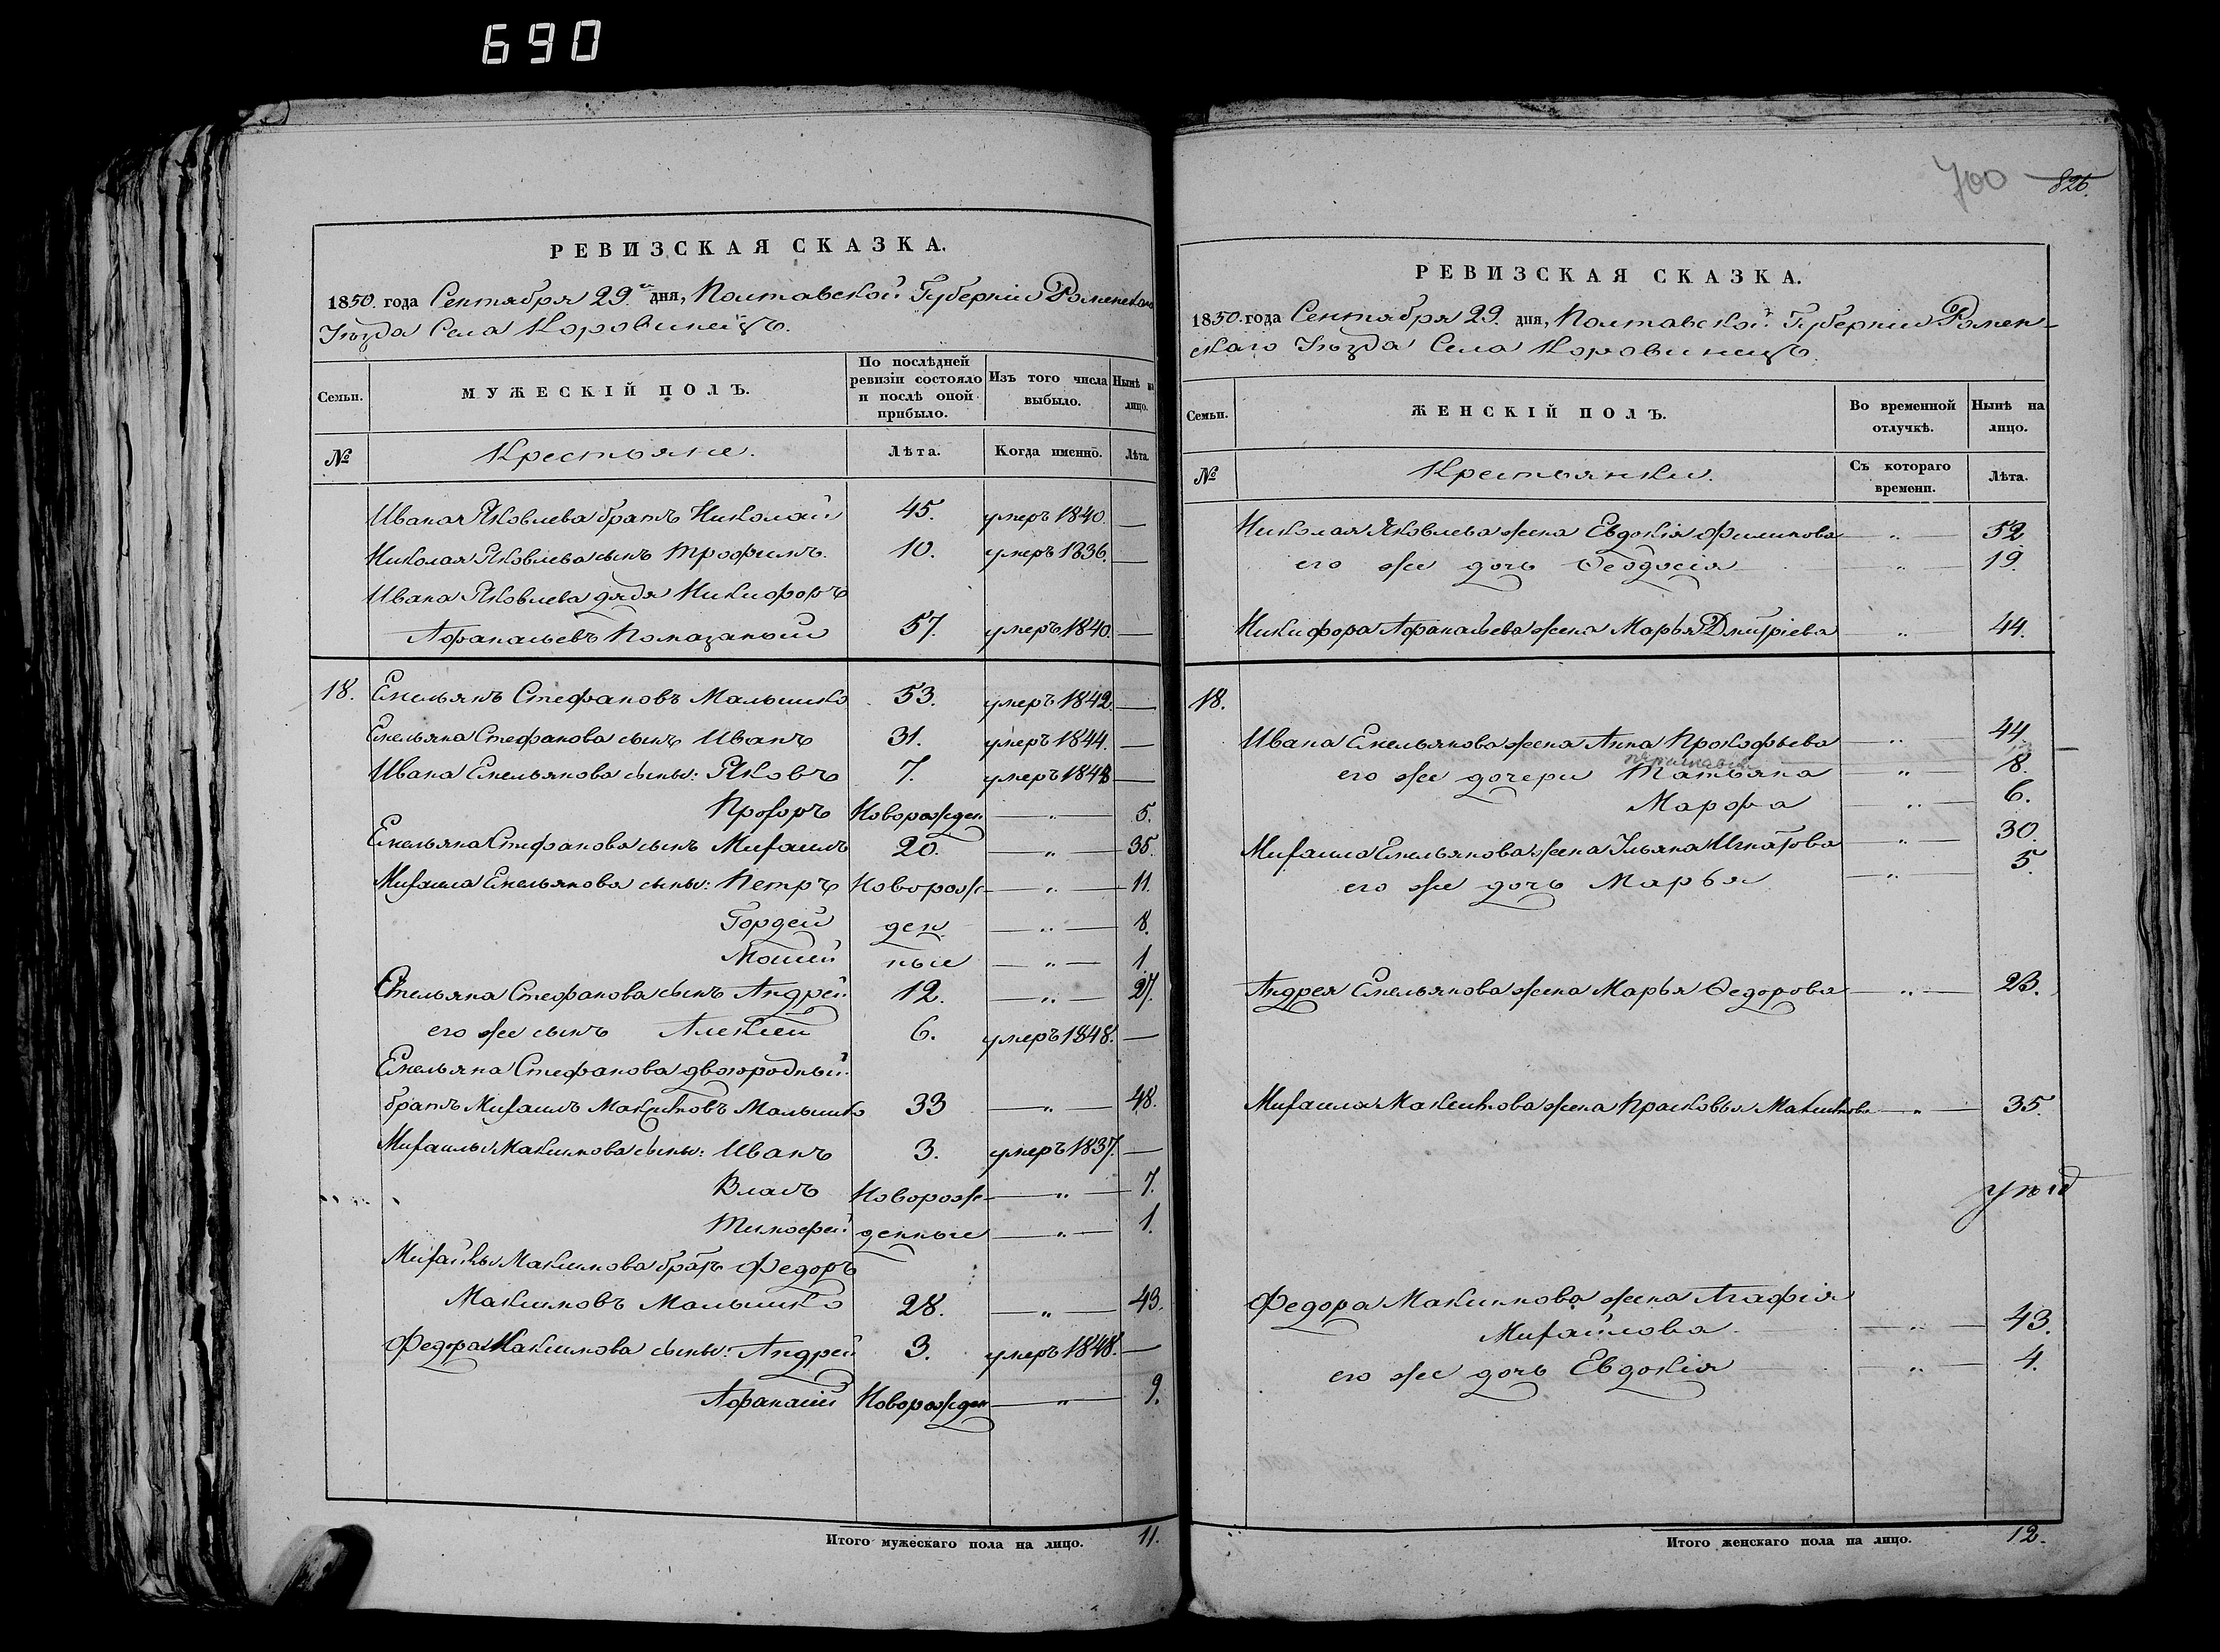 690
РЕВИЗСКАЯ СКАЗКА.
1850. года Сентября 29.го дня, Полтавской Губернии Роменскаго
Уѣзда Села Коровинецъ.
Семьи. МУЖЕСКІЙ ПОЛЪ. По послѣдней ревизіи состояло и послѣ оной прибыло. Изъ того числа выбыло. Нынѣ на лицо.
№ Крестьяне. Лѣта. Когда именно. Лѣта.
Ивана Яковлева братъ Николай 45. умеръ 1840. —
Николая Яковлева сынъ Трофимъ. 10. умеръ 1836. —
Ивана Яковлева дядя Никифоръ
Афанасьевъ Помазаный 57. умеръ 1840. —
18. Емельянъ Стефановъ Малышко 53. умеръ 1842. —
Емельяна Стефанова сынъ Иванъ 31. умеръ 1844. —
Ивана Емельянова сыны: Яковъ 7. умеръ 1848 —
Прохоръ Новорожден — „ — 5.
Емельяна Стефанова сынъ Михаилъ 20. — „ — 35.
Михаила Емельянова сыны: Петръ Новорож — „ — 11.
Гордей ден — „ — 8.
Мосей ные — „ — 1.
Емельяна Стефанова сынъ Андрей 12. — „ — 27.
его же сынъ Алексей 6. умеръ 1848. —
Емельяна Стефанова двоюродный
братъ Михаилъ Максимовъ Малышко 33 — „ — 48.
Михаилы Максимова сыны: Иванъ 3. умеръ 1837. —
Власъ Новорож — „ — 7.
Тимофей денные — „ — 1.
Михайлы Максимова братъ Федоръ
Максимовъ Малышко 28. — „ — 43.
Федора Максимова сыны: Андрей 3. умеръ 1848. —
Афанасій Новорожден — „ — 9.
Итого мужескаго пола на лицо. 11.
700 826.
РЕВИЗСКАЯ СКАЗКА.
1850. года Сентября 29. дня, Полтавской Губернии Ромен-
скаго Уѣзда Села Коровинецъ.
Семьи. ЖЕНСКІЙ ПОЛЪ. Во временной отлучкѣ. Нынѣ на лицо.
№ Крестьянки. Съ котораго времени. Лѣта.
Николая Яковлева жена Евдокія Филипова — „ — 52
его же дочь Феодосія — „ — 19.
Никифора Афанасьева жена Марья Дмитріева — „ — 44.
18.
Ивана Емельянова жена Анна Прокофьева — „ — 44.
его же дочери Татьяна — „ — 8.
Марфа — „ — 6.
Михаила Емельянова жена Ульяна Игнатова — „ — 30.
его же дочь Марья — „ — 5.
Андрея Емельянова жена Марья Федорова — „ — 23.
Михаила Максимова жена Прасковья Максимова — „ — 35.
Федора Максимова жена Агафія
Михайлова — „ — 43.
его же дочь Евдокія — „ — 4.
Итого женскаго пола на лицо. 12.